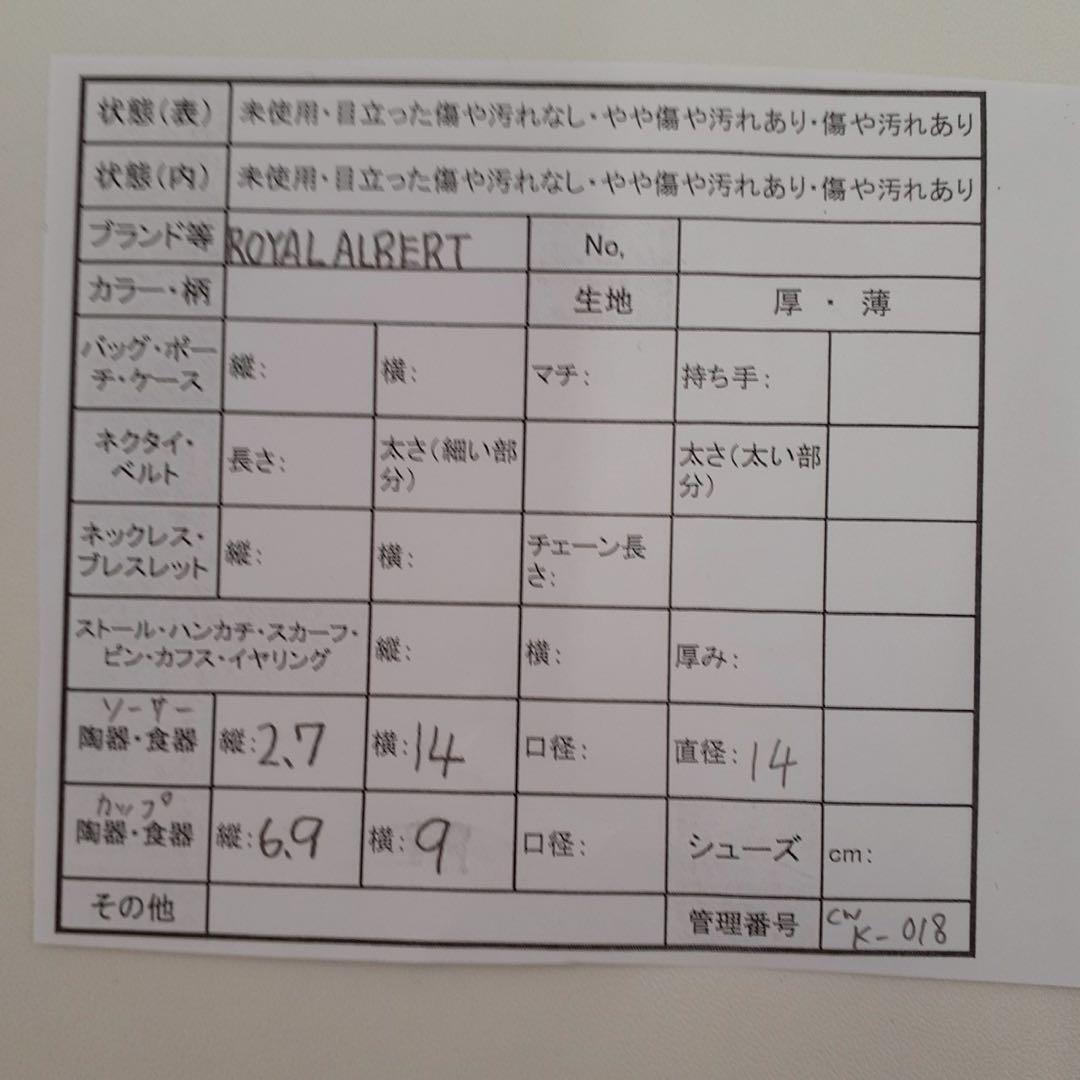 状態(表) 未使用・目立った傷や汚れなし・やや傷や汚れあり・傷や汚れあり
状態(内) 未使用・目立った傷や汚れなし・やや傷や汚れあり・傷や汚れあり
ブランド等 ROYAL ALBERT No,
カラー・柄 生地 厚・薄
バッグ・ポー
チ・ケース
縦: 横: マチ: 持ち手:
ネクタイ・
ベルト
長さ:
太さ(細い部
分)
太さ(太い部
分)
ネックレス・
ブレスレット
縦: 横:
チェーン長
さ:
ストール・ハンカチ・スカーフ・
ピン・カフス・イヤリング
縦: 横: 厚み:
ソーサー
陶器・食器 縦:2.7 横:14 口径: 直径:14
カップ
陶器・食器 縦:6.9 横:9 口径: シューズ cm:
その他 管理番号 CW
K-018